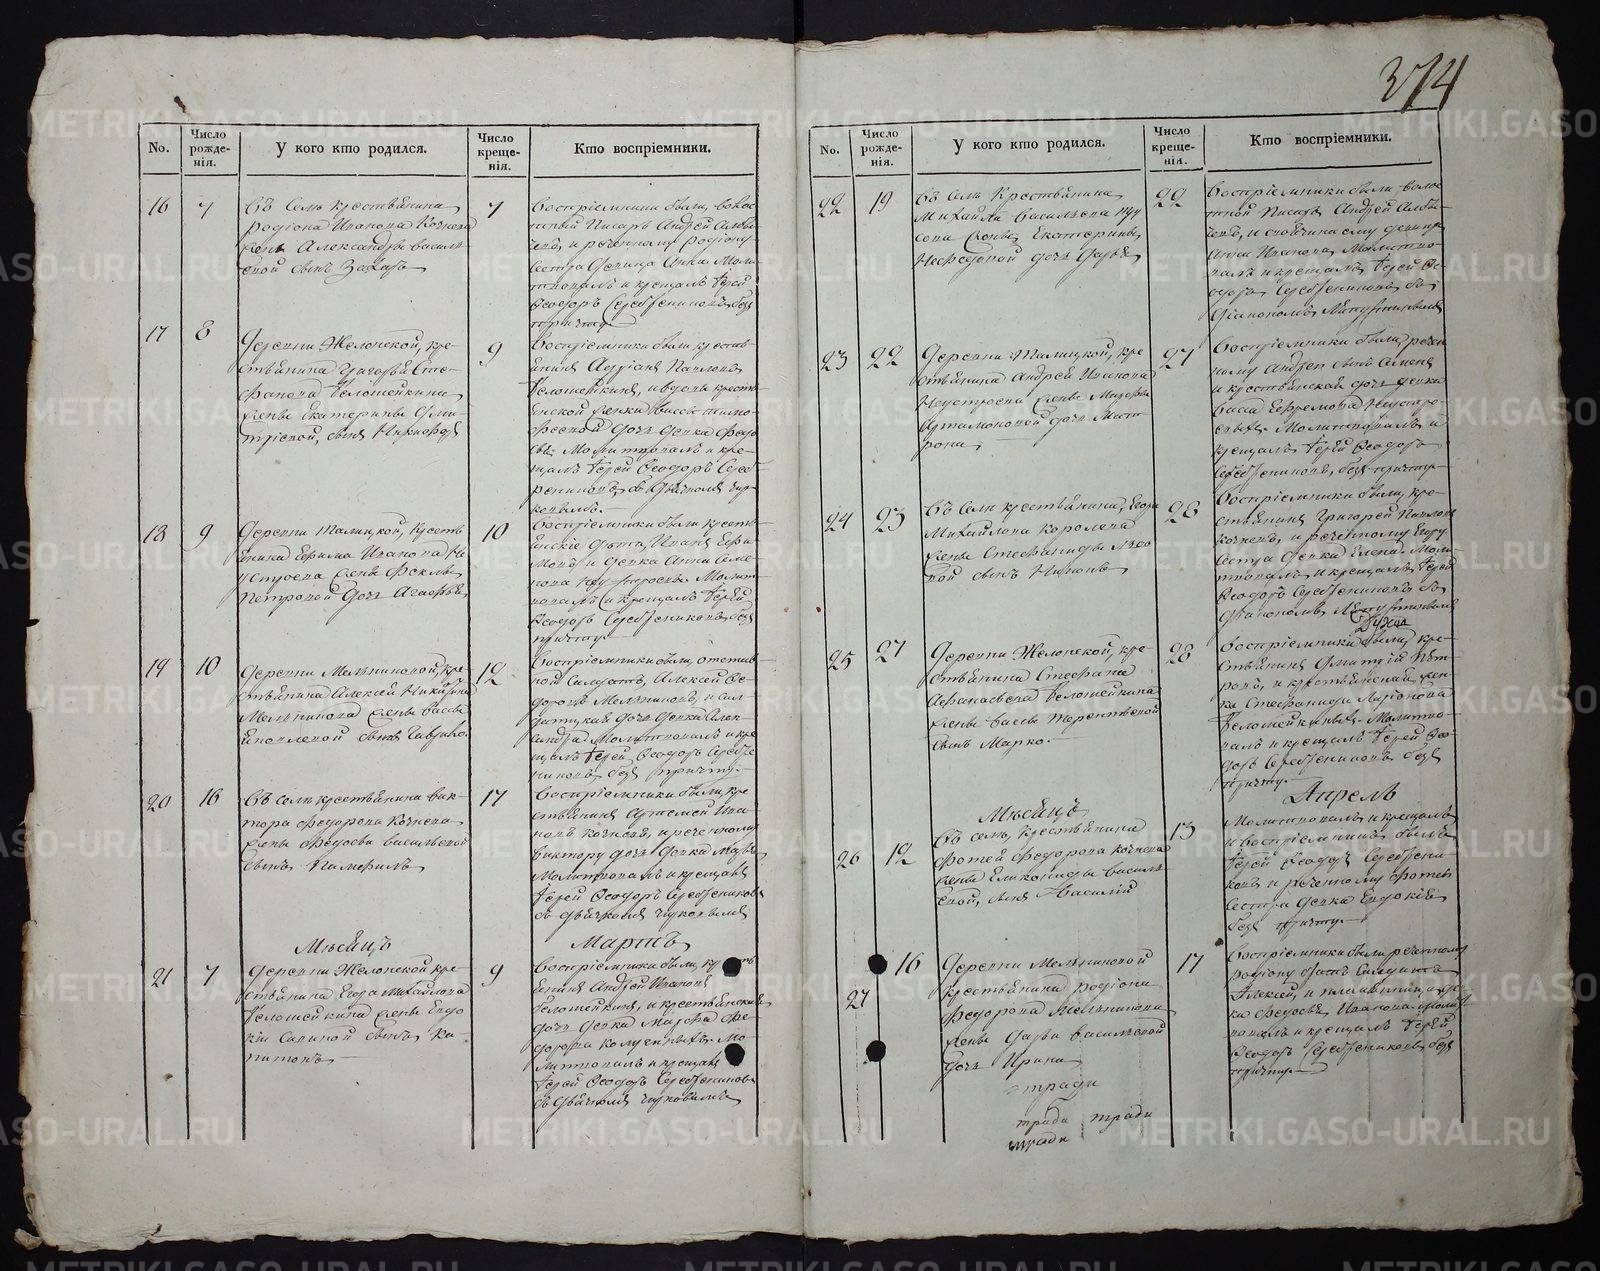 374
No.
Число рожде-нія.
У кого кто родился.
Число креще-нія.
Кто воспріемники.
16
7
Въ селѣ крестьянина
Родіона Иванова Кочнева
жены Александры Василь
евой сынъ Захаръ
7
Воспріемники были, волос
тный Писарь Андрей
и реченному Родіону
сестра девица Анна. Моли
твовалъ и крещалъ Іерей
Феодоръ Серебрениковъ, безъ
причту.
17
8
Деревни Желонской, кре-
стьянина Григорья Сте-
фанова Телошейкина
жены Екатерины Дми-
тріевой, сынъ Никифоръ
9
Воспріемники были крестья-
янинъ
Телошейкинъ, и вдовы кресть-
янской женки Вассы Тимо-
феевой дочь девка Федо
Молитвовалъ и кре-
щалъ Іерей Феодоръ Сереб-
рениковъ, съ дьячкомъ
18
9
Деревни Талицкой, кресть
янина Ефима Иванова Не
устроева жены Феклы
Петровой дочь Агафья
10
Воспріемники были кресть-
янскіе дети, Иванъ Ефи
мовъ и девка Анна Семе
нова Неустроевы. Молит
вовалъ и крещалъ Іерей
Феодоръ Серебрениковъ безъ
причту.
19
10
Деревни Мельниковой, кре-
стьянина Алексея Никитина
Мельникова жены Вассы
Яковлевой сынъ Гавріилъ.
12
Воспріемники были, отстав-
ной салдатъ, Алексей Фе-
доровъ Мельниковъ, и сал
датская дочь девка Алек-
сандра Молитвовалъ и кре
щалъ Іерей Феодоръ Серебре
никовъ безъ причту.
20
16
Въ селѣ крестьянина Вик-
тора Федорова Кочнева
жены Федосьи Васильевой
сынъ Памфилъ
17
Воспріемники были, кре
стьянинъ Артемей Ива-
новъ Кочневъ, и реченному
Виктору дочь девка Марья
Молитвовалъ и крещалъ
Іерей Феодоръ Серебрениковъ
съ дьячкомъ
Мѣсяцъ
Мартъ
21
7
Деревни Желонской кре-
стьянина Егора Михайлова
Телошейкина жены Евдо
кіи Савиной сынъ Ка-
питонъ
9
Воспріемники были,
янинъ Андрей Ивановъ
Телошейкинъ, и крестьянская
дочь девка Марфа Фе-
дорова Мо-
литвовалъ и крещалъ
Іерей Феодоръ Серебрениковъ
съ дьячкомъ
No.
Число рожде-нія.
У кого кто родился.
Число креще-нія.
Кто воспріемники.
22
19
Въ селѣ Крестьянина
Михайла Васильева
жены Екатерины
Нефедовой дочь Дарья
22
Воспріемники были волос
тной Писарь Андрей
девица
Анна Иванова, Молитво-
валъ и крещалъ Іерей Фе-
одоръ Серебрениковъ съ
23
22
Деревни Талицкой, кре
стьянина Андрея Иванова
Неустроева жены
Артамоновой дочь Мат
рона
27
Воспріемники были, рече
нному Андрею сынъ Семенъ
и крестьянская дочь девка
Васса Ефремова Неустро-
евы. Молитвовалъ и
крещалъ Іерей Феодоръ
Серебрениковъ, безъ причту
24
23
Въ селѣ крестьянина, Егора
Михайлова Королева
жены Стефаниды
сынъ Никонъ
28
Воспріемники были, кре-
стьянинъ Григорей Павловъ
Кочневъ, и реченному Егору
сестра девка Елена. Моли-
твовалъ и крещалъ Іерей
Феодоръ Серебрениковъ съ
25
27
Деревни Желонской, кре-
стьянина Стефана
Афанасьева Телошейкина
жены Вассы Терентьевой
сынъ Марко.
28
Воспріемники были, кре-
стьянинъ Дмитрій Пет-
ровъ, и крестьянская жен-
ка Стефанида Ларіонова
Телошейкины. Молитво-
валъ и крещалъ Іерей Фео-
доръ Серебрениковъ безъ
причту.
Мѣсяцъ
Апрель
26
12
Въ селѣ, крестьянина
Фотея Федорова Кочнева
жены Еликониды Василь
евой, сынъ Василій
13
Молитвовалъ и крещалъ
и воспріемникъ былъ
Іерей Феодоръ Серебрени
ковъ и реченному Фотею
сестра девка Евдокія
безъ причту.
27
16
Деревни Мельниковой
крестьянина Родіона
Федорова Мельникова
жены Дарьи Васильевой
дочь Ирина
17
Воспріемники были реченному
Родіону братъ Салдатъ
Алексей, и
Федосья Иванова. Молит
вовалъ и крещалъ Іерей
Феодоръ Серебрениковъ безъ
причту.
тради
тради тради
тради
METRIKI.GASO-URAL.RU